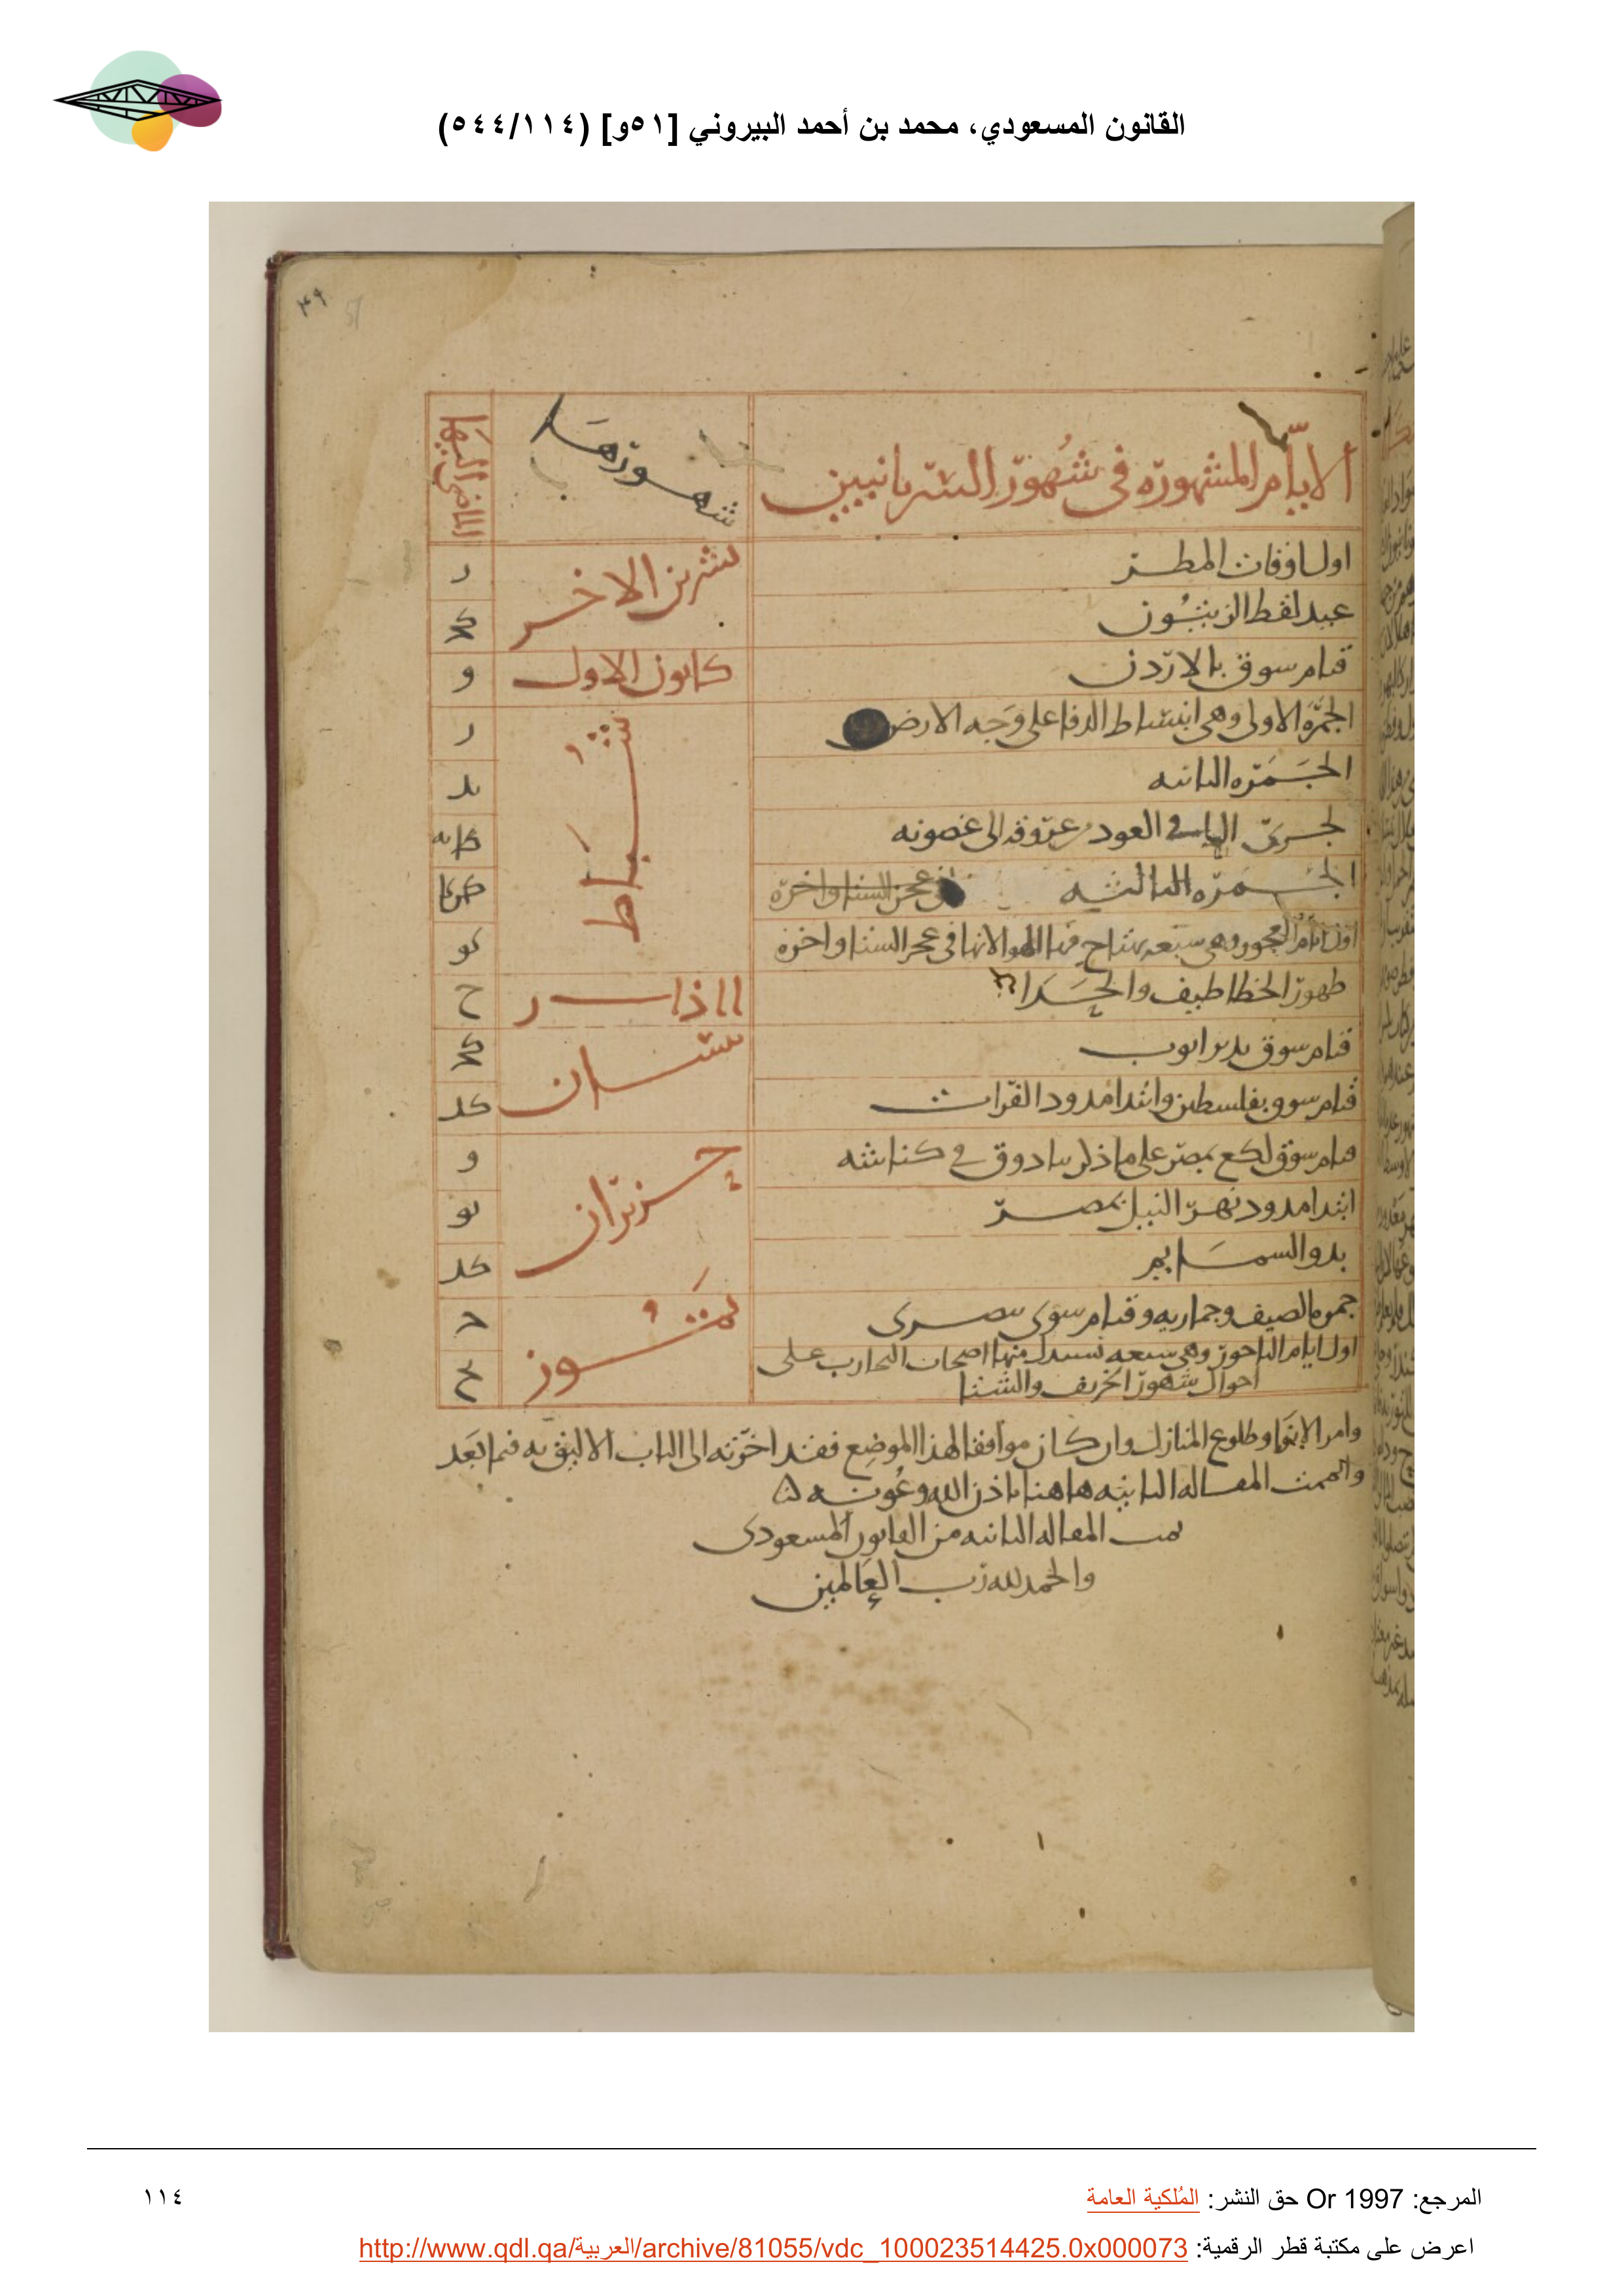 القانون المسعودي، محمد بن أحمد البيروني [٥١و] (٥٤٤/١١٤)
٤٩
51
الايّام المشهورة في شهور السّريانيين
شهورها
الماضي اليها
اول اوقات المطر
تشرين الاخر
عيد لقط الزيتون
كا
قيام سوق بالاردن
كانون الاول
و
الجمرة الاولى وهي انبساط الدفا على وجه الارض
شباط
الجمرة الثانيه
يد
لجري الما في العود من عروقه الى غصونه
الجمرة الثالثه
كا
في عجز الشتا واخره
اول ايام العجوز وهي سبعه الهوا لانها في عجز الشتا واخره
كو
ظهور الخطاطيف والحدا
اذار
ح
قيام سوق بدير ايوب
نيسان
كا
قيام سوق بفلسطين وابتدا مدود الفرات
كد
قيام سوق لكع بمصر على ما ذكر سادوق في كناشه
حزيران
و
ابتدا مدود نهر النيل بمصر
يو
بدو السمايم
كد
الصيف وجماريه وقيام سوق بصرى
تموز
اول ايام الباحور وهي سبعه يستدل منها اصحاب التجارب على
احوال شهور الخريف والشتا
يح
وامر الانوا وطلوع المنازل وان كان موافقا لهذا الموضع فقد اخرته الى الباب الاليق به فيما بعد
واتممت المقاله الثانيه هاهنا باذن الله وعونه
تمت المقاله الثانيه من القانون المسعودي
والحمد لله رب العالمين
المرجع: Or 1997 حق النشر: المُلكية العامة
١١٤
اعرض على مكتبة قطر الرقمية: http://www.qdl.qa/العربية/archive/81055/vdc_100023514425.0x000073